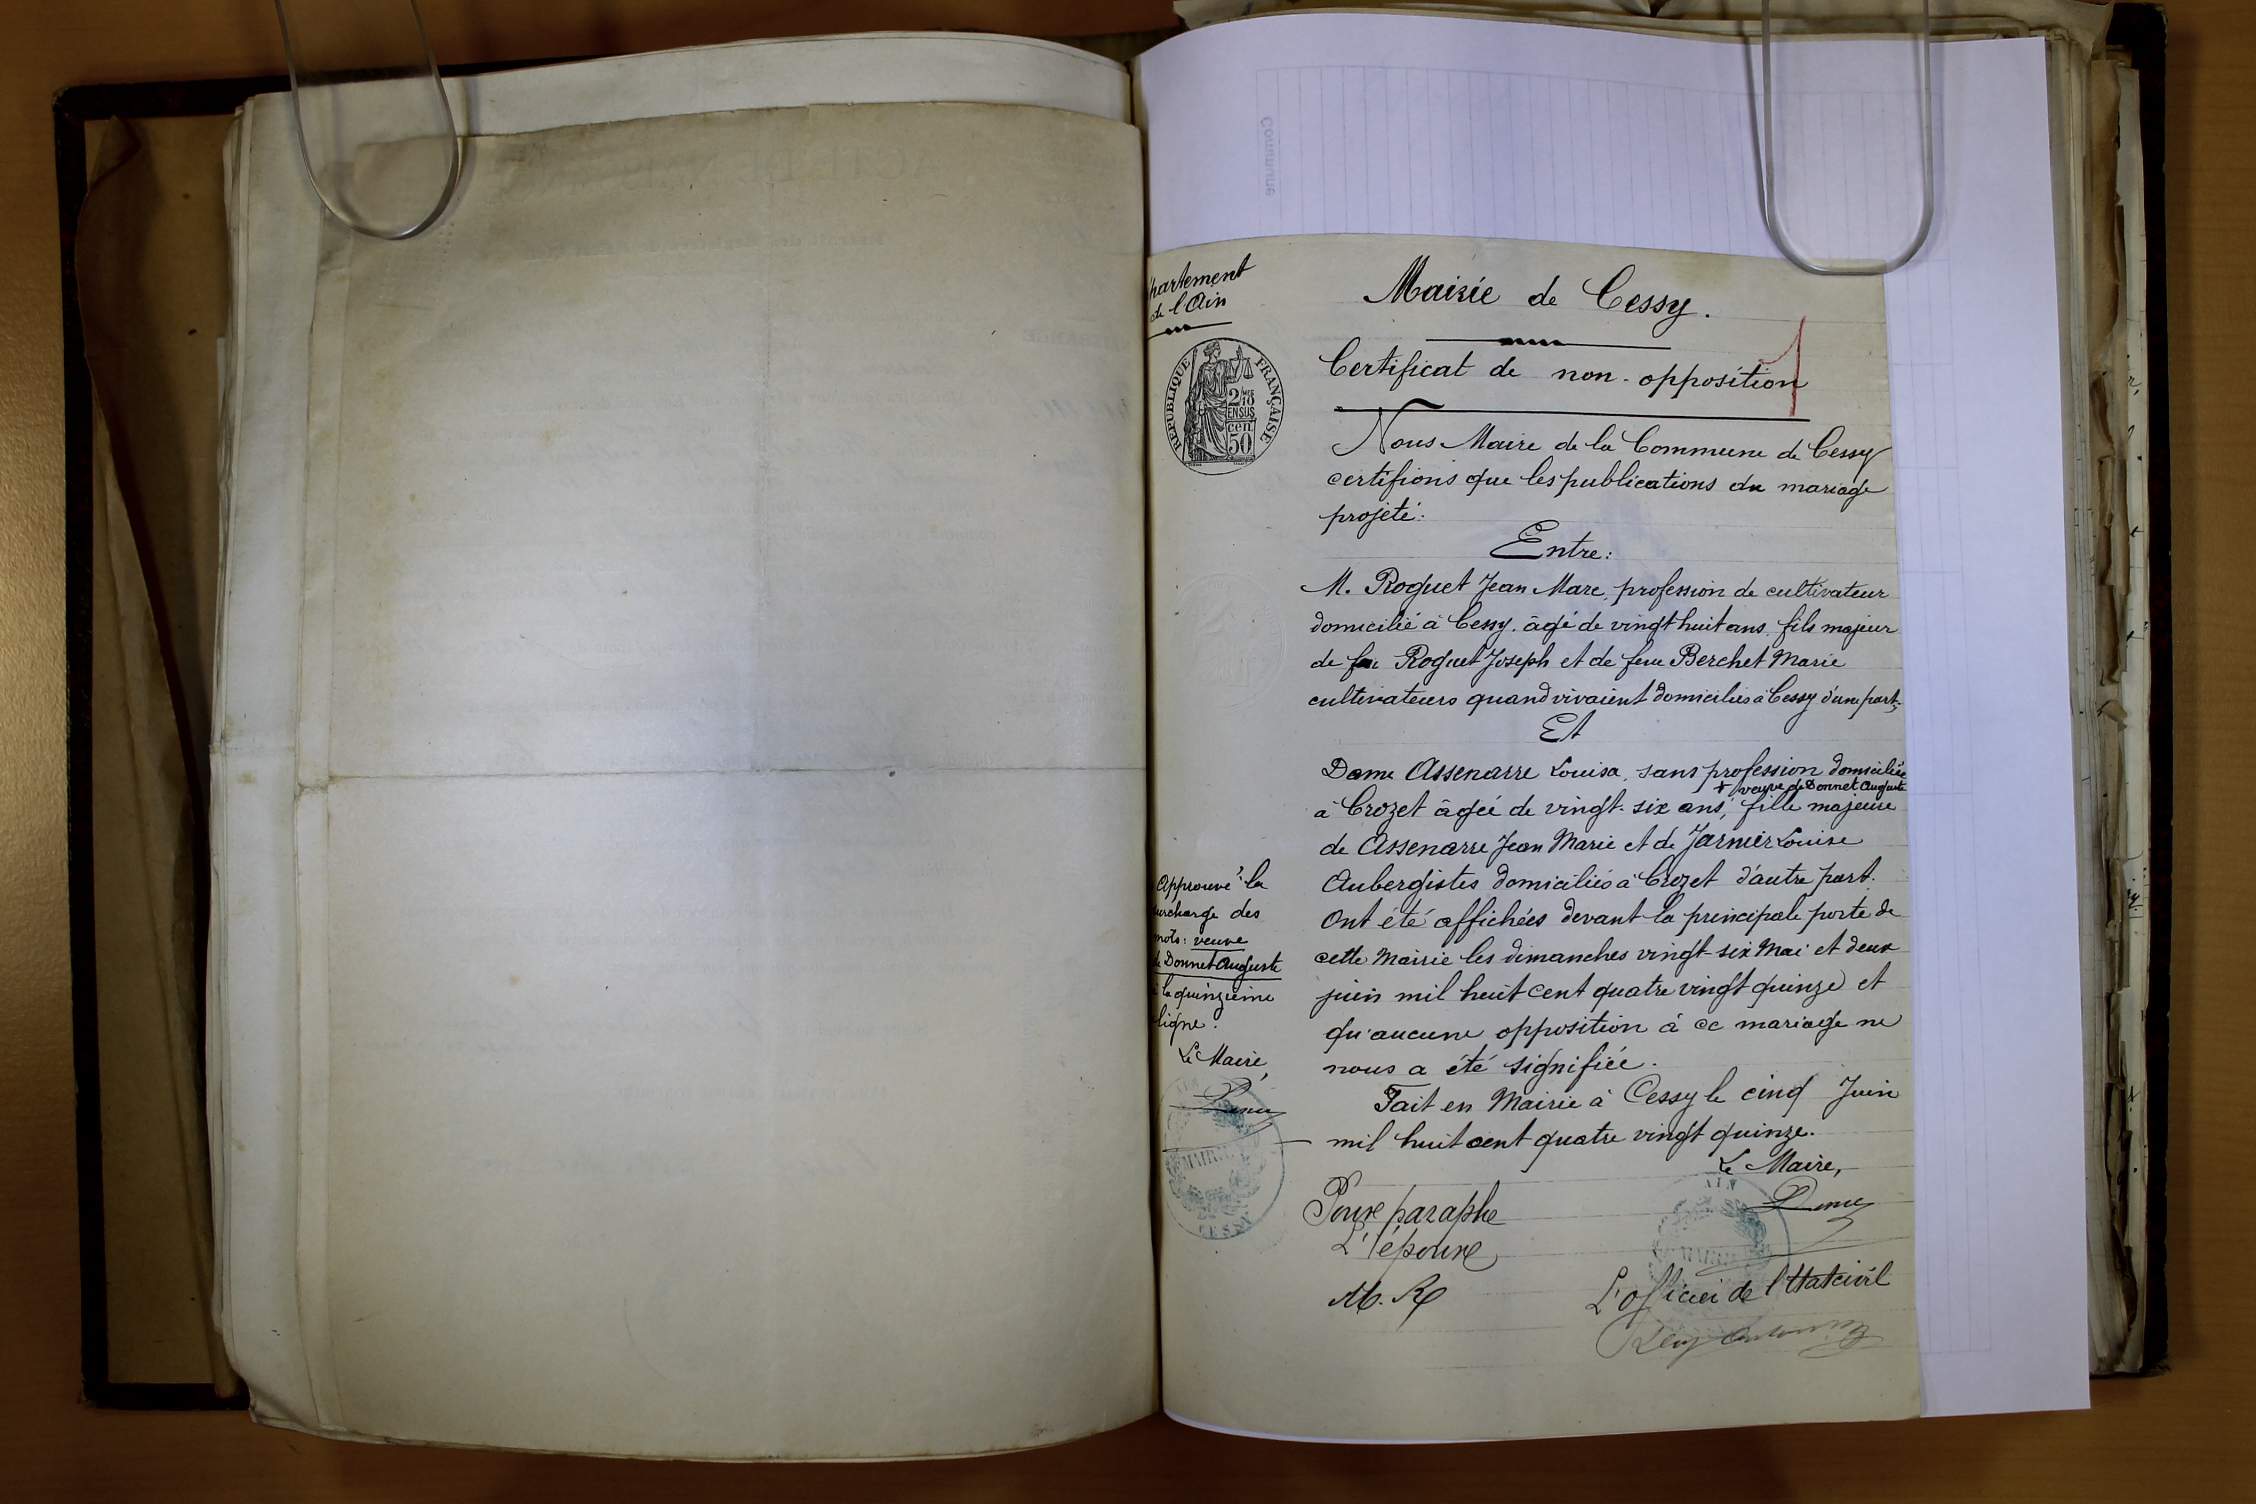 Département
de l'Ain
Mairie de Cessy.
Certificat de non-opposition
RÉPUBLIQUE FRANÇAISE
2/10
EN SUS
50
cen
Nous Maire de la Commune de Cessy
certifions que les publications du mariage
projeté:
Entre:
M. Roguet Jean Marc, profession de cultivateur
domicilié à Cessy. âgé de vingt huit ans fils majeur
de feu Roguet Joseph et de feue Berchet Marie
cultivateurs quand vivaient domiciliés à Cessy d'une part,
Et
Dame Assenarre Louisa, sans profession domiciliée
+ veuve de Donnet Auguste
à Crozet âgée de vingt-six ans, fille majeure
de Assenarre Jean Marie et de Jarnier Louise
Aubergistes domiciliés à Crozet d'autre part.
Ont été affichées devant la principale porte de
cette Mairie les dimanches vingt-six Mai et deux
juin mil huit cent quatre vingt quinze et
qu'aucune opposition à ce mariage ne
nous a été signifiée.
Fait en Mairie à Cessy le cinq Juin
mil huit cent quatre vingt quinze.
Le Maire,
Approuvé la
surcharge des
mots: veuve
de Donnet Auguste
à la quinzième
ligne.
Le Maire,
AIN
MAIRIE
CESSY
Pour paraphe
L'époux
M. R
AIN
MAIRIE
L'officier de l'état civil
Commune